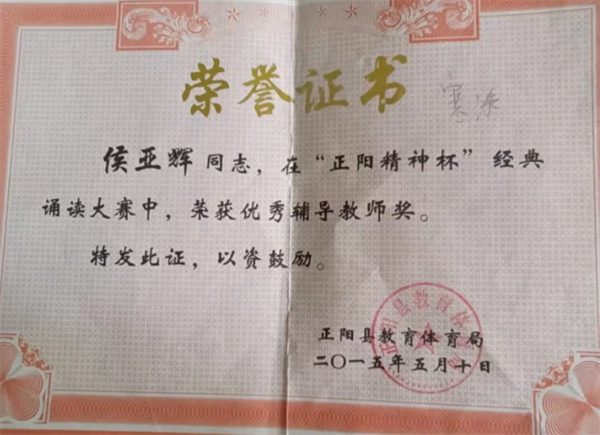 荣誉证书
侯亚辉同志，在“正阳精神杯”经典
诵读大赛中，荣获优秀辅导教师奖。
特发此证，以资鼓励。
正阳县教育体育局
二〇一五年五月十日